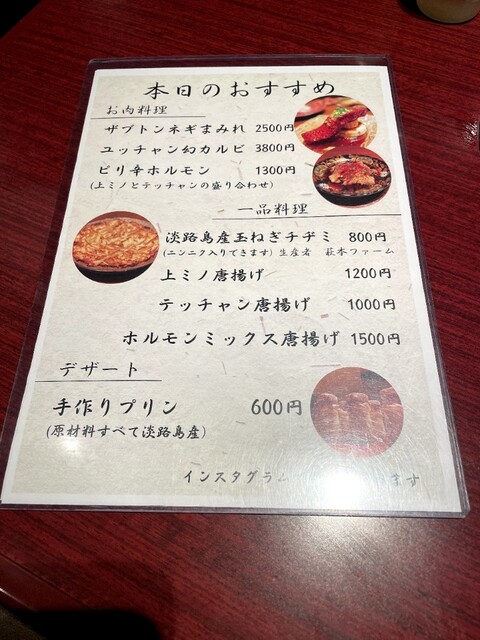 本日のおすすめ
お肉料理
ザブトンネギまみれ 2500円
ユッチャン幻カルビ 3800円
ピリ辛ホルモン 1300円
(上ミノとテッチャンの盛り合わせ)
一品料理
淡路島産玉ねぎチヂミ 800円
(ニンニク入りできます) 生産者 萩本ファーム
上ミノ唐揚げ 1200円
テッチャン唐揚げ 1000円
ホルモンミックス唐揚げ 1500円
デザート
手作りプリン 600円
(原材料すべて淡路島産)
インスタグラム ます